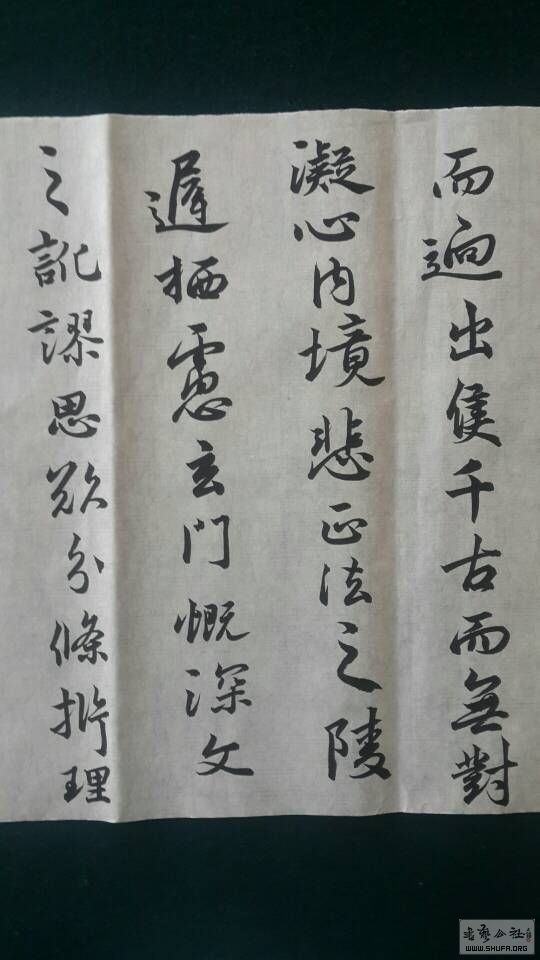 而逈出侯千古而無對
凝心内境悲正法之陵
遲栖慮玄門慨深文
之訛謬思欲分條㭊理
書藝公社
WWW.SHUFA.ORG